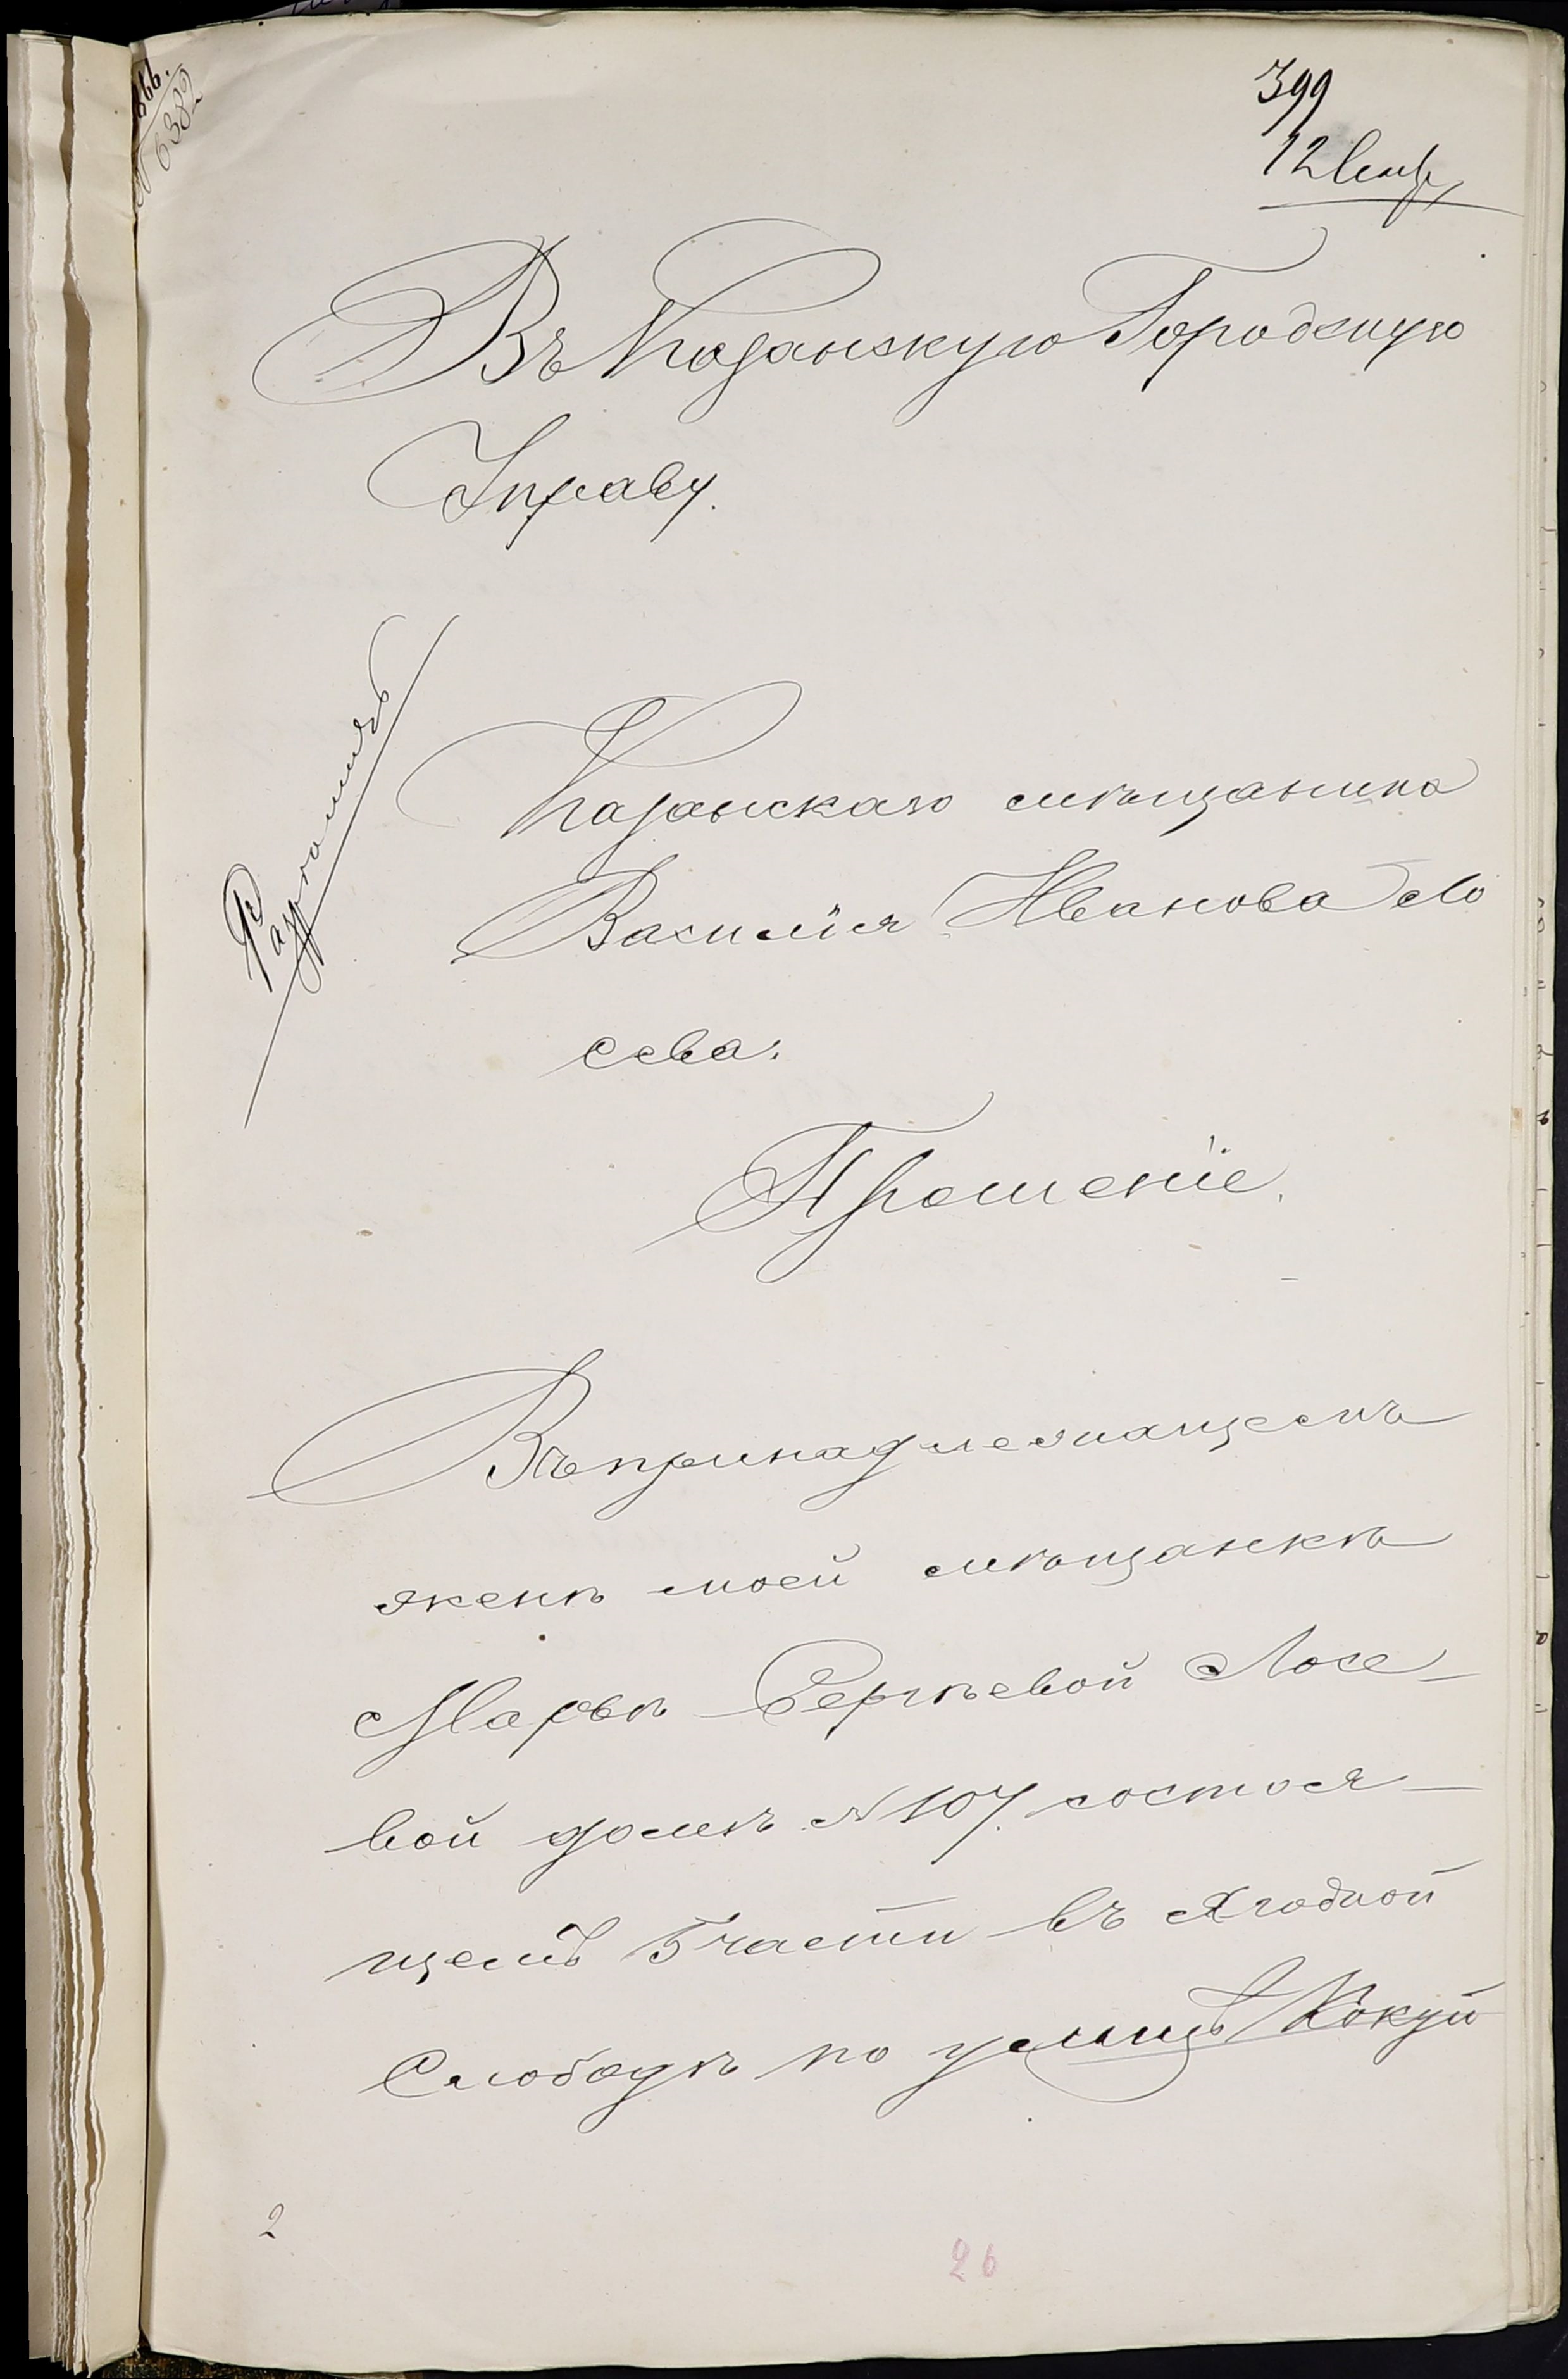 399
12 Сент,
Въ Казанскую Городскую
Управу.
Разрѣшить
Казанскаго мѣщанина
Василія Иванова Ло
сева.
Прошеніе.
Въ принадлежащемъ
женѣ моей мѣщанкѣ
Марьѣ Сергѣевой Лосе-
вой домѣ № 107. состоя-
щемъ 5 части въ Ягодной
Слободѣ по улицѣ Кокуй
2
26